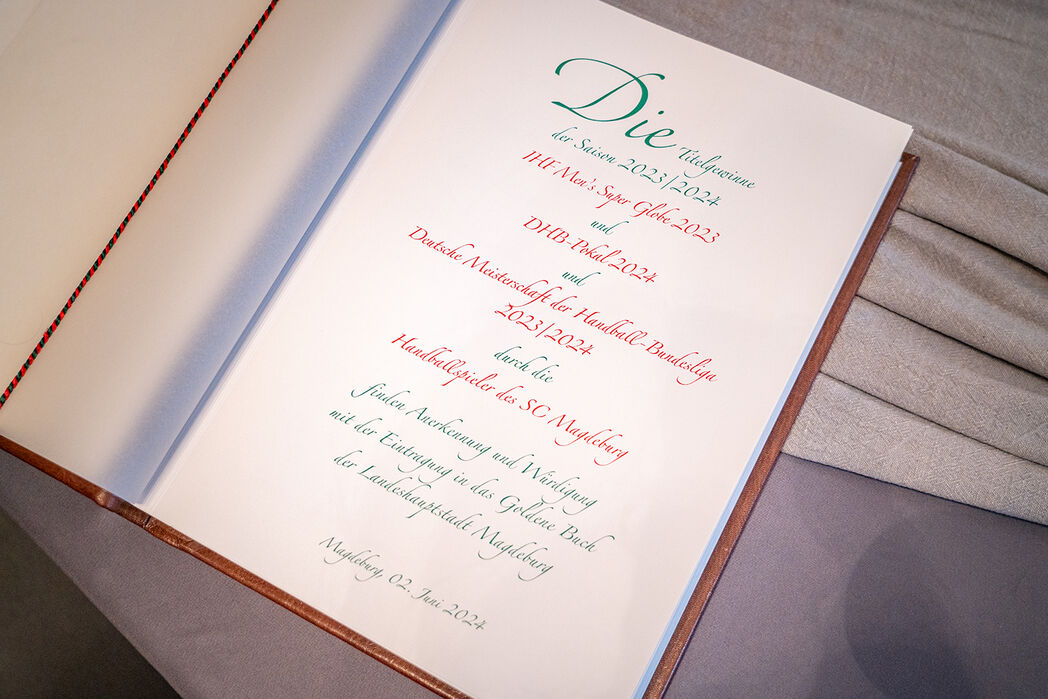 Die Titelgewinne
der Saison 2023/2024
IHF Men's Super Globe 2023
und
DHB-Pokal 2024
und
Deutsche Meisterschaft der Handball-Bundesliga
2023/2024
durch die
Handballspieler des SC Magdeburg
finden Anerkennung und Würdigung
mit der Eintragung in das Goldene Buch
der Landeshauptstadt Magdeburg
Magdeburg, 02. Juni 2024